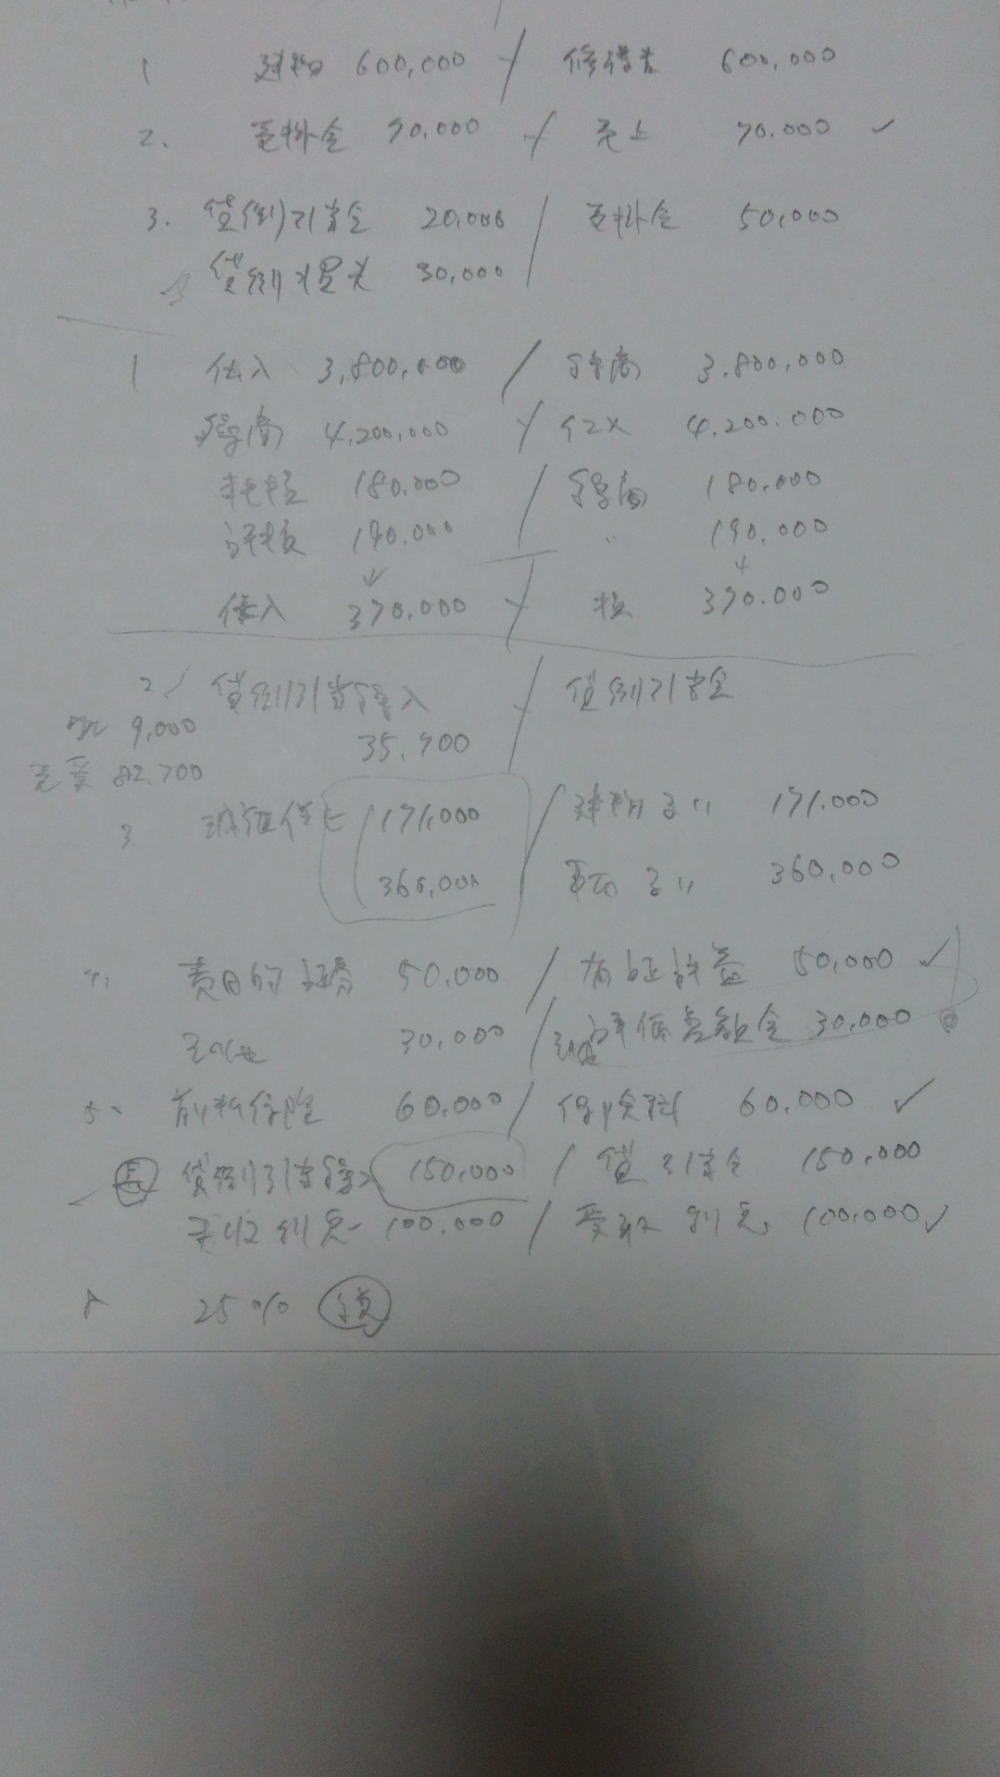 1 建物 600,000 / 修繕費 600,000
2. 売掛金 90,000 / 売上 90,000 ✓
3. 貸倒引当金 20,000 / 売掛金 50,000
貸倒損失 30,000
1 仕入 3,800,000 / 繰商 3,800,000
繰商 4,200,000 / 仕入 4,200,000
耗損 180,000 / 繰商 180,000
評損 190,000 / 〃 190,000
仕入 370,000 / 損 370,000
2 貸倒引当繰入 / 貸倒引当金
9,000
35,700
82,700
3 減価 171,000 / 建物 171,000
360,000 / 360,000
売目的証券 50,000 / 有証評益 50,000 ✓
その他 30,000 / その他評価差額金 30,000
5. 前払保険 60,000 / 保険料 60,000 ✓
長 貸倒引当繰入 150,000 / 貸引当金 150,000
未収利息 100,000 / 受取利息 100,000 ✓
25%